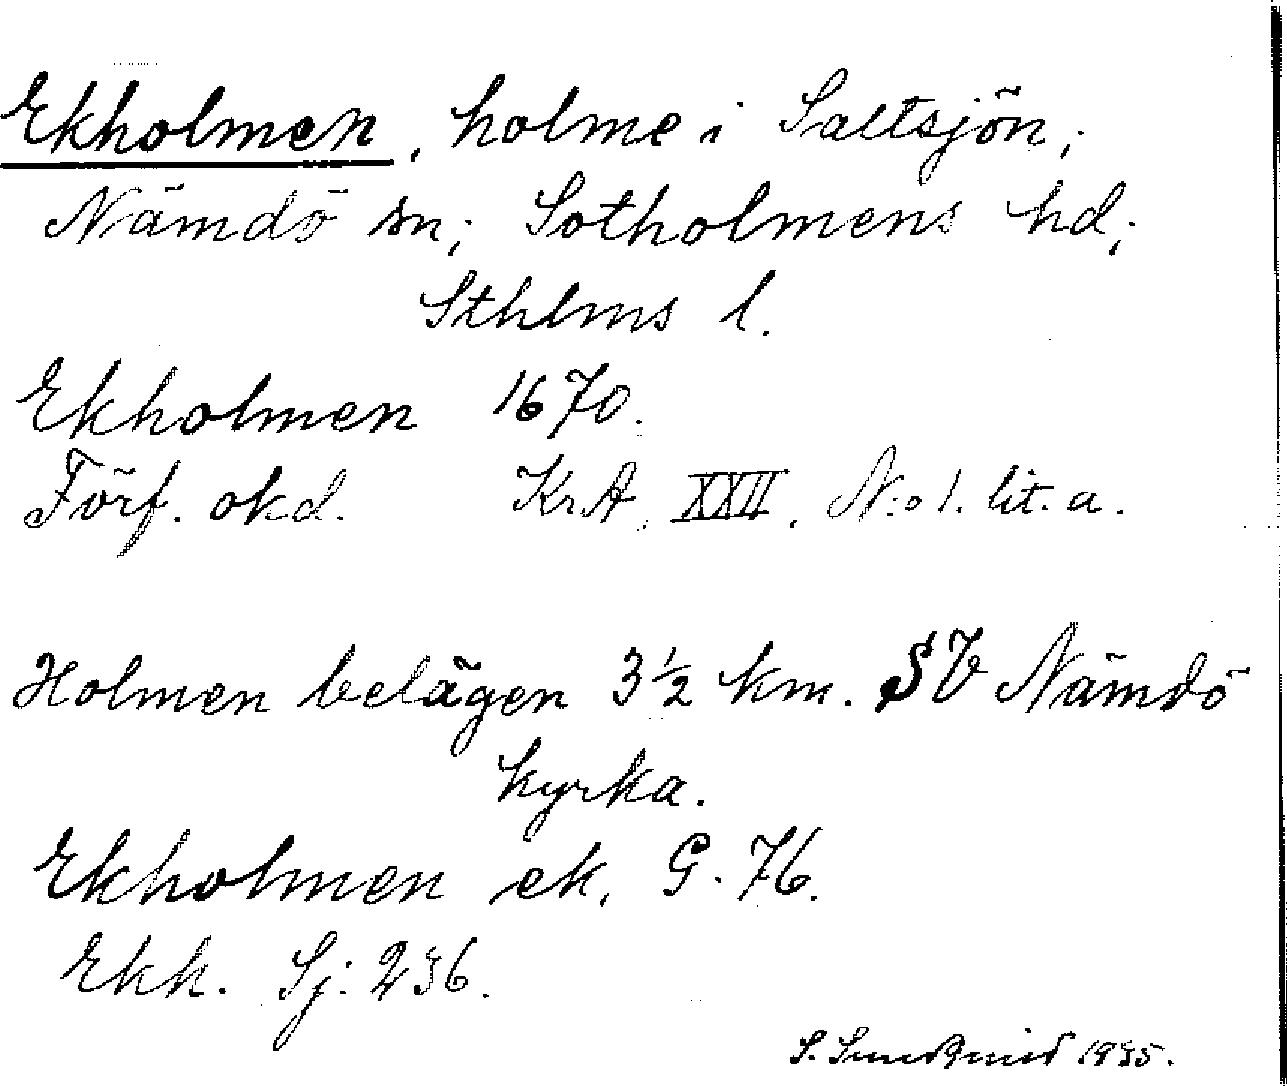 Ekholmen, holme i Saltsjön;
Nämdö sn; Sotholmens hd;
Sthlms l.
Ekholmen 1670.
Förf. okd. KrA, XXII, N:o 1. lit. a.
Holmen belägen 3½ km. SV Nämdö
kyrka.
Ekholmen ek, G. 76.
Ekk. Sj: 236.
S. 1935.